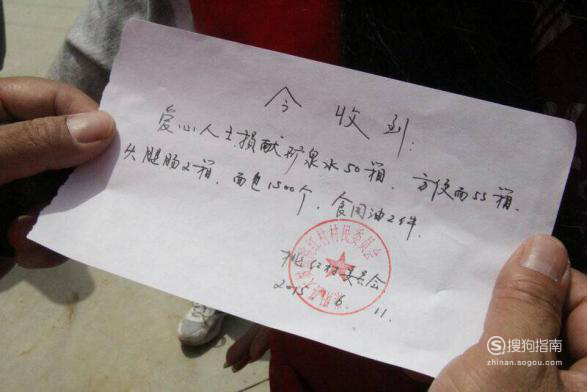 今收到:
爱心人士捐献矿泉水50箱、方便面55箱、
火腿肠2箱、面包1500个、食用油2件.
桃红村委员会
2015 6. 11.
红村村民委员会
搜狗指南
zhinan.sogou.com